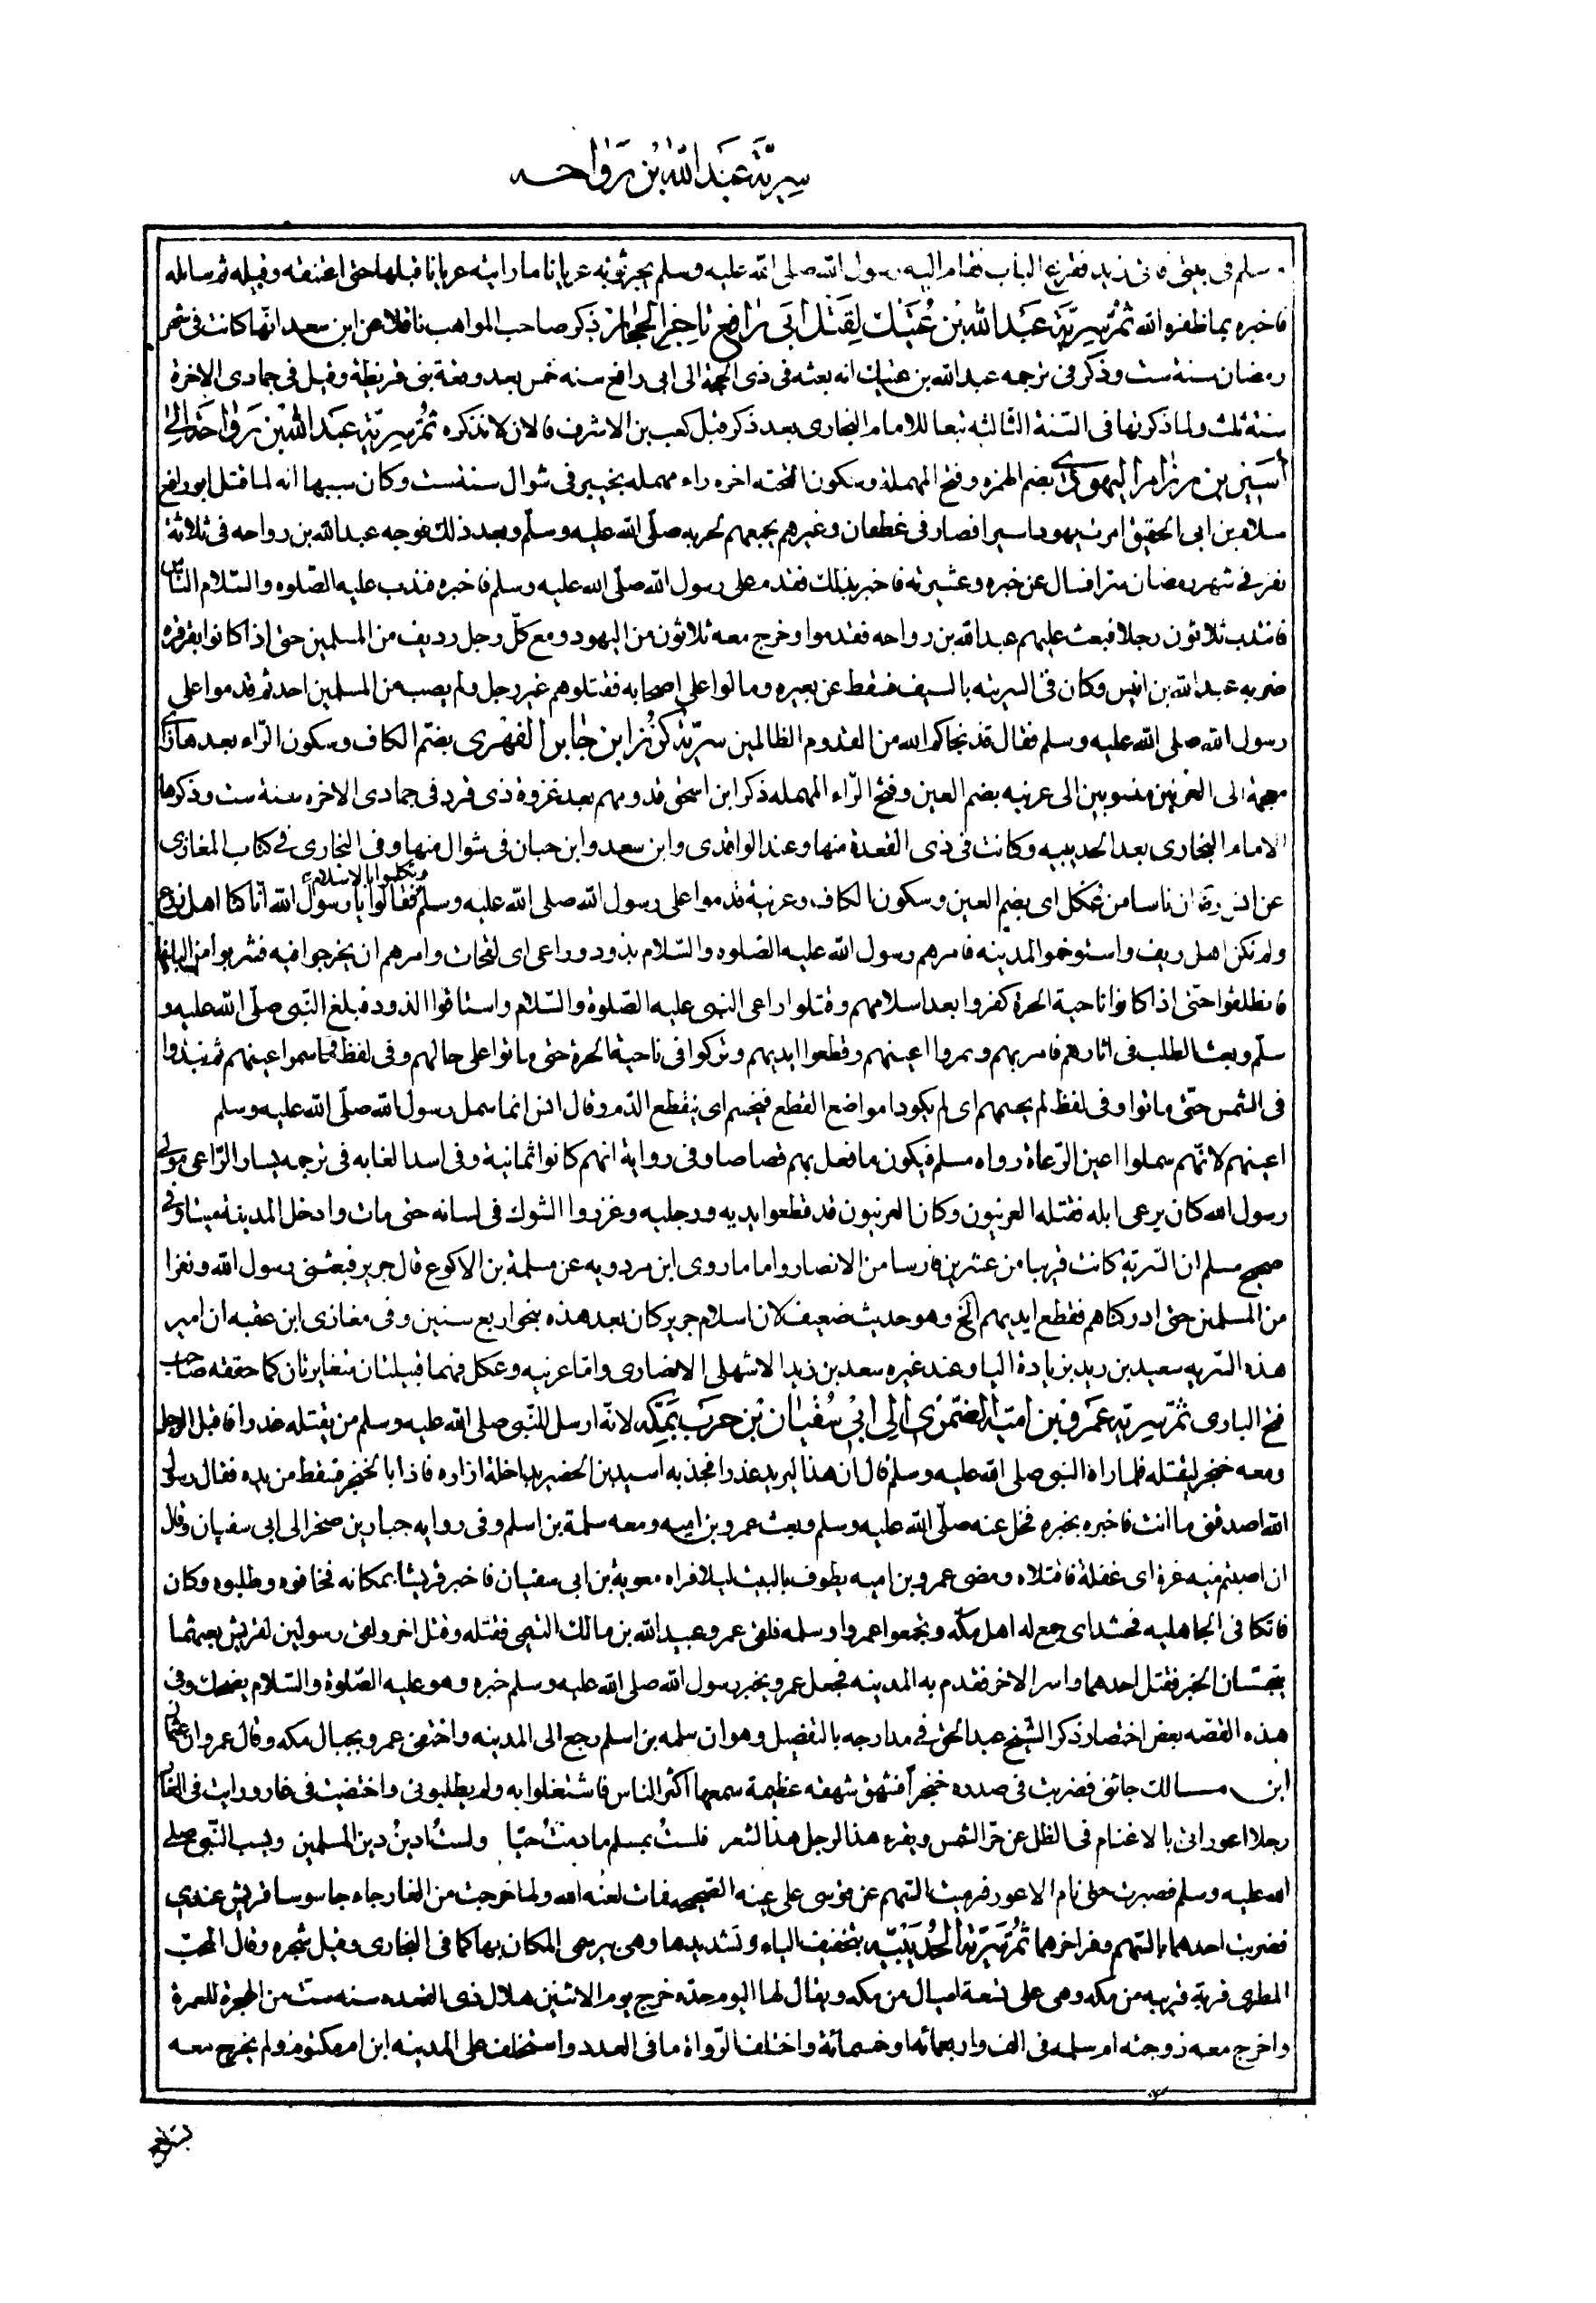 سرية عبد الله بن رواحه
وسلم فى بيتى فاتى زيد فقرع الباب فقام اليه رسول الله صلى الله عليه وسلم يجر ثوبه عريانا ما رايته عريانا قبلها حتى اعتنقه وقبله ثم سائله
فاخبره بما ظفره الله ثم سرية عبد الله بن عتيك لقتل ابى رافع تاجر الحجاز ذكر صاحب المواهب ناقلا عن ابن سعد انها كانت فى شهر
رمضان سنة ست وذكر فى ترجمه عبد الله بن عتيك انه بعثه فى ذى الحجة الى ابى رافع سنه خمس بعد وقعة بنى قريظة وقيل فى جمادى الاخرة
سنة ثلث ولما ذكرتها فى السنة الثالثه تبعا للامام البخارى بعد ذكر قتل كعب بن الاشرف فالان لا نذكره ثم سرية عبد الله بن رواحة الى
أسير بن رزام اليهودى بضم الهمزه وفتح المهملة وسكون التحته اخره راء مهمله بخيبر فى شوال سنة ست وكان سببها انه لما قتل ابو رافع
سلام بن ابى الحقيق امرت يهود اسيرا فصار فى غطفان وغيرهم يجمعهم لحربه صلى الله عليه وسلم وبعد ذلك فوجه عبد الله بن رواحه فى ثلاثة
نفر فى شهر رمضان سرا فسال عن خبره وعشيرته فاخبر بذلك فقدم على رسول الله صلى الله عليه وسلم فاخبره فندب عليه الصلوه والسلام الناس
فانتدب ثلاثون رجلا فبعث عليهم عبد الله بن رواحه فقدموا وخرج معه ثلاثون من اليهود ومع كل رجل رديف من المسلمين حتى اذا كانوا بقرقره
ضربه عبد الله بن انيس وكان فى السريه بالسيف فسقط عن بعيره ومالوا على اصحابه فقتلوهم غير رجل ولم يصب من المسلمين احد ثم قدموا على
رسول الله صلى الله عليه وسلم فقال قد نجاكم الله من القوم الظالمين سرية كرز ابن جابر الفهرى بضم الكاف وسكون الراء بعدها زاى
معجمة الى العرنيين منسوبين الى عرنيه بضم العين وفتح الراء المهمله ذكر ابن اسحق قدومهم بعد غزوة ذى قرد فى جمادى الاخره سنة ست وذكرها
الامام البخارى بعد الحديبيه وكانت فى ذى القعدة منها وعند الواقدى وابن سعد وابن حبان فى شوال منها وفى البخارى فى كتاب المغازى
عن انس رض ان ناسا من عكل اى بضم العين وسكون الكاف وعرنية قدموا على رسول الله صلى الله عليه وسلم وتكلموا بالاسلام فقالوا يا رسول الله انا كنا اهل زرع
ولم نكن اهل ريف واستوخموا المدينه فامرهم رسول الله عليه الصلوه والسلام بذود وراعى اى لقحات وامرهم ان يخرجوا فيه فشربوا من البانها
فانطلقوا حتى اذا كانوا ناحية الحرة كفروا بعد اسلامهم وقتلوا راعى النبى عليه الصلوة والسلام واستاقوا الذود فبلغ النبى صلى الله عليه و
سلم وبعث الطلب فى اثارهم فامر بهم وسمروا اعينهم وقطعوا ايديهم وتركوا فى ناحية الحرة حتى ماتوا على حالهم وفى لفظ فما سموا عينهم ثم نبذوا
فى الشمس حتى ماتوا وفى لفظ لم يحسمهم اى لم يكووا مواضع القطع فيحسم اى ينقطع الدم وقال انس انما سمل رسول الله صلى الله عليه وسلم
اعينهم لانهم سملوا اعين الرعاة رواه مسلم فيكون ما فعل بهم قصاصا وفى رواية انهم كانوا ثمانية وفى اسد الغابه فى ترجمه يسار الراعى مولى
رسول الله كان يرعى ابله فقتله العرنيون وكان العرنيون قد قطعوا يديه ورجليه وغرزوا الشوك فى لسانه حتى مات وادخل المدينة ميتا وفى
صحيح مسلم ان السرية كانت قريبا من عشرين فارسا من الانصار واما ما روى ابن مردويه عن مسلمة بن الاكوع قال جرير فبعثنى رسول الله ونفرا
من المسلمين حتى ادركناهم فقطع ايديهم الخ وهو حديث ضعيف لان اسلام جرير كان بعد هذه بنحو اربع سنين وفى مغازى ابن عقبه ان امير
هذه السريه سعيد بن زيد بزيادة اليا وعند غيره سعد بن زيد الاشهلى الانصارى واما عرنيه وعكل فهما قبيلتان متغايرتان كما حققه صاحب
فتح البارى ثم سريه عمرو بن امية الضمرى الى ابى سفيان بن حرب بمكه لانه ارسل للنبى صلى الله عليه وسلم من يقتله غدرا فاقبل الرجل
ومعه خنجر ليقتله فلما راه النبى صلى الله عليه وسلم قال ان هذا ليريد غدرا فجذبه اسيد بن الحضير بداخلة ازاره فاذا بالخنجر فسقط من يده فقال رسول
الله اصدقنى ما انت فاخبره بخبره فخلى عنه صلى الله عليه وسلم وبعث عمرو بن اميه ومعه سلمة بن اسلم وفى روايه جبار بن صخر الى ابى سفيان وقال
ان اصبتم فيه غرة اى غفلة فاقتلاه ومضى عمرو بن اميه يطوف بالبيت ليلا فراه معوية بن ابى سفيان فاخبر قريشا بمكانه فخافوه وطلبوه وكان
فاتكا فى الجاهليه فحشد اى جمع له اهل مكه وتجمعوا عمروا وسلمه فلقى عمرو عبيد الله بن مالك التيمى فقتله وقتل اخر ولقى رسولين لقريش بعثهما
يتجسسان الخبر فقتل احدهما واسر الاخر فقدم به المدينه فجعل عمرو يخبر رسول الله صلى الله عليه وسلم خبره وهو عليه الصلوة والسلام يضحك وفى
هذه القصه بعض اختصار ذكر الشيخ عبد الحق فى مدارجه بالتفصيل وهو ان سلمه بن اسلم رجع الى المدينه واختفى عمرو بجبال مكه وقال عمرو ان عثمان
ابن مالك جائنى فضربت فى صدره خنجرا فشهق شهقه عظيمة سمعها اكثر الناس فاشتغلوا به ولم يطلبونى واختفيت فى غار ورايت فى الغار
رجلا اعور اتى بالاغنام فى الظل عن حر الشمس ويقرء هذا الرجل هذا الشعر فلست بمسلم ما دمت حيا ولست ادين دين المسلمين ويسب النبى صلى
الله عليه وسلم فصبرت حتى نام الاعور فرميت السهم عن قوسى على عينه الصحيحه فمات لعنه الله ولما خرجت من الغار جاء جاسوسا قريش عندى
فضربت احدهما بالسهم وفر اخرهما ثم سرية الحديبيه بتخفيف الياء وتشديدها وهى بير سمى المكان بها كما فى البخارى وقيل شجره وقال المحب
الطبرى قرية قريبه من مكه وهى على تسعة اميال من مكه ويقال لها اليوم حده خرج يوم الاثنين هلال ذى القعده سنه ست من الهجرة للعمرة
واخرج معه زوجته ام سلمه فى الف واربعمائه او خمسمائة واختلف الرواة ما فى العدد واستخلف على المدينه ابن ام مكتوم ولم يخرج معه